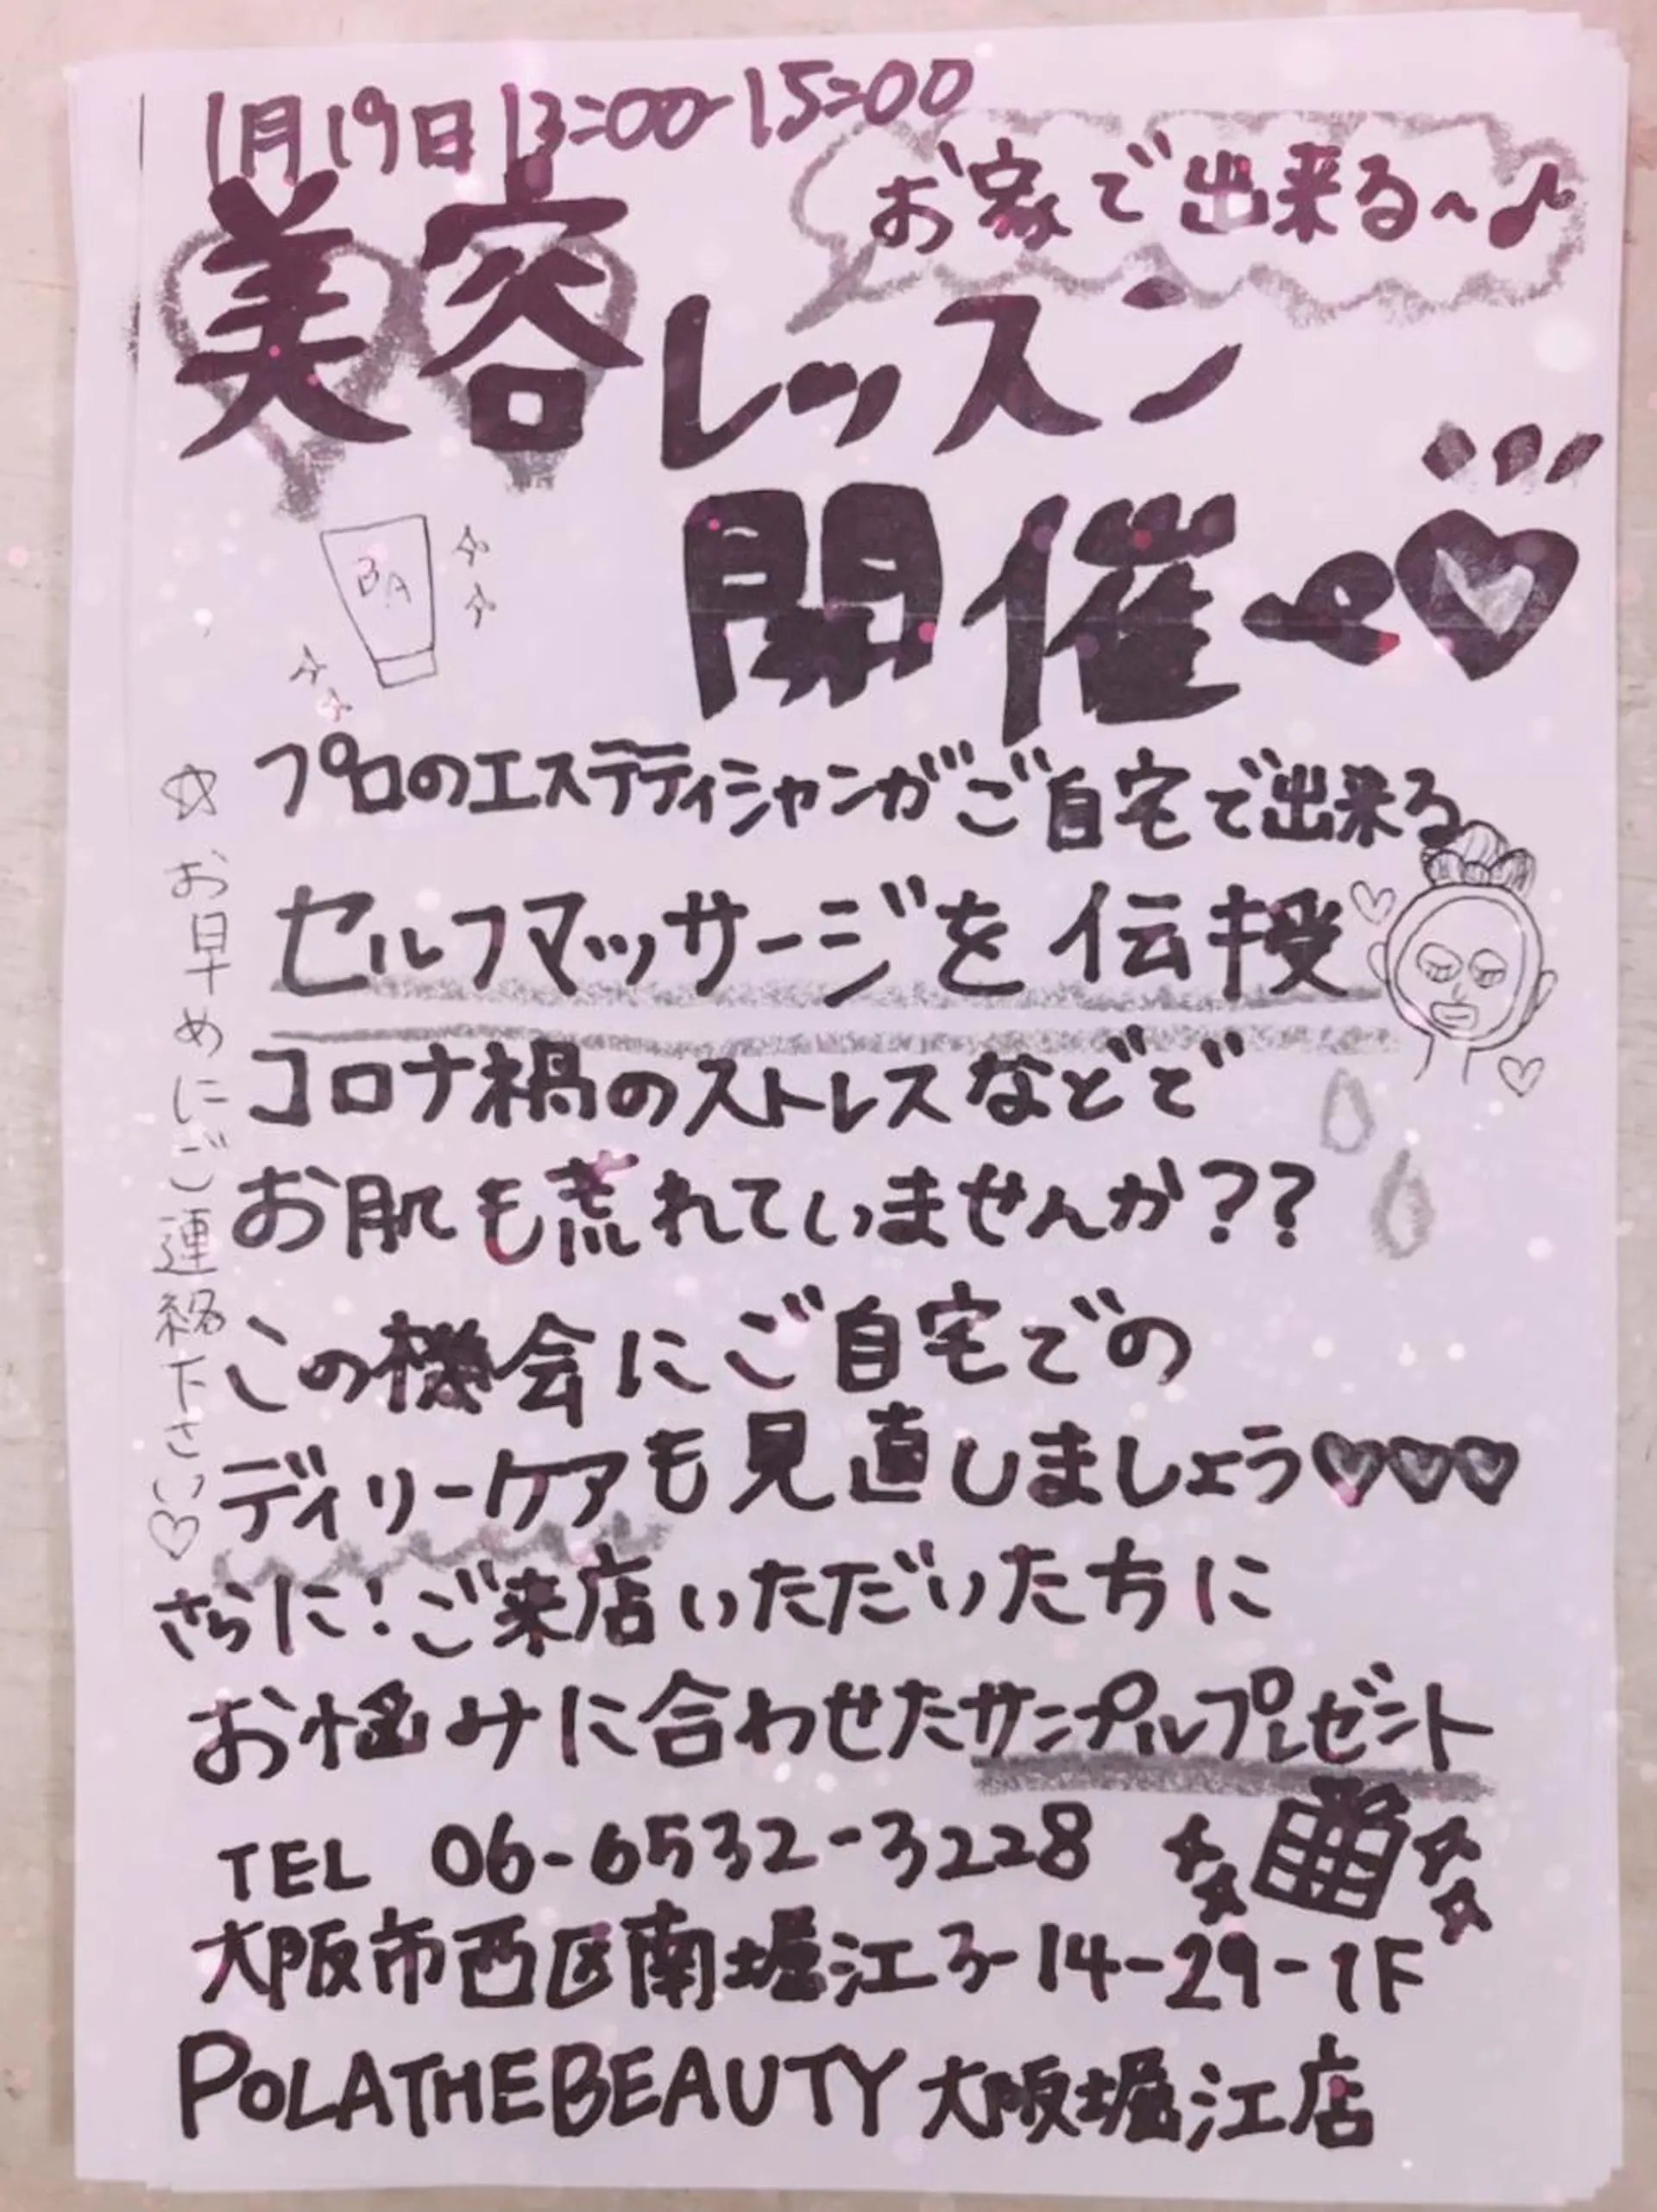 1月19日 13:00-15:00
お家で出来る〜♪
美容レッスン
開催〜♡
BA
プロのエステティシャンがご自宅で出来る
セルフマッサージを伝授
コロナ禍のストレスなどで
お肌も荒れていませんか??
この機会にご自宅での
ディリーケアも見直しましょう♡♡♡
さらに!ご来店いただいた方に
お悩みに合わせたサンプルプレゼント
TEL 06-6532-3228
大阪市西区南堀江3-14-29-1F
POLATHEBEAUTY大阪堀江店
☆お早めにご連絡下さい♡